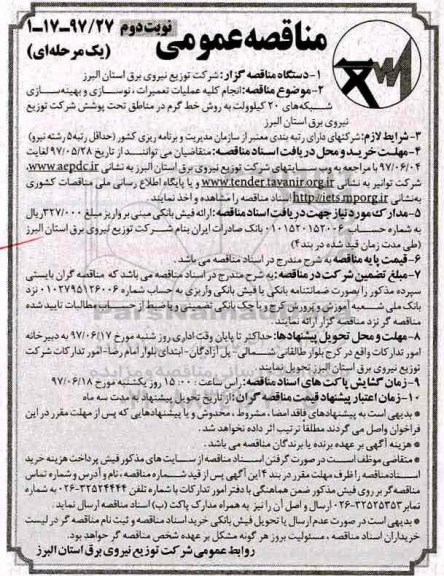 مناقصه عمومی
نوبت دوم ۹۷/۲۷-۱۷-۱
(یک مرحله‌ای)
۱-دستگاه مناقصه گزار: شرکت توزیع نیروی برق استان البرز
۲-موضوع مناقصه: انجام کلیه عملیات تعمیرات ، نوسازی و بهینه‌سازی
شبکه‌های ۲۰ کیلوولت به روش خط گرم در مناطق تحت پوشش شرکت توزیع
نیروی برق استان البرز
۳-شرایط لازم: شرکتهای دارای رتبه بندی معتبر از سازمان مدیریت و برنامه ریزی کشور (حداقل رتبه ۵ رشته نیرو)
۴-مهلت خرید و محل دریافت اسناد مناقصه: متقاضیان می توانند از تاریخ ۹۷/۰۵/۲۸ لغایت
۹۷/۰۶/۰۴ با مراجعه به وب سایتهای شرکت توزیع نیروی برق استان البرز به نشانی www.aepdc.ir،
شرکت توانیر به نشانی www.tender.tavanir.org.ir و یا پایگاه اطلاع رسانی ملی مناقصات کشوری
به‌نشانی http://iets.mporg.ir اسناد مناقصه را مشاهده و اخذ نمایند .
۵-مدارک مورد نیاز جهت دریافت اسناد مناقصه: ارائه فیش بانکی مبنی بر واریز مبلغ ۳۲۷/۰۰۰ ریال
به شماره حساب ۰۱۰۱۵۲۰۱۵۲۰۰۶ بانک صادرات ایران بنام شرکت توزیع نیروی برق استان البرز
(طی مدت زمان قید شده در بند ۴)
۶-قیمت پایه مناقصه به شرح مندرج در اسناد مناقصه می باشد .
۷-مبلغ تضمین شرکت در مناقصه: به شرح مندرج در اسناد مناقصه می باشد که مناقصه گران بایستی
سپرده مذکور را بصورت ضمانتنامه بانکی یا فیش بانکی واریزی به حساب شماره ۰۱۰۲۷۹۵۱۲۶۰۰۶ نزد
بانک ملی شعبه آموزش و پرورش کرج و یا چک بانکی تضمینی و یا ضبط از حساب مطالبات تایید شده
مناقصه گر نزد مناقصه گزار ارائه نمایند .
۸-مهلت و محل تحویل پیشنهادها: حداکثر تا پایان وقت اداری روز شنبه مورخ ۹۷/۰۶/۱۷ به دبیرخانه
امور تدارکات واقع در کرج بلوار طالقانی شمالی - پل آزادگان - ابتدای بلوار امام رضا- امور تدارکات شرکت
توزیع نیروی برق استان البرز تحویل نمایند.
۹-زمان گشایش پاکت های اسناد مناقصه: راس ساعت ۱۵:۰۰ روز یکشنبه مورخ ۹۷/۰۶/۱۸
۱۰-زمان اعتبار پیشنهاد قیمت مناقصه گران: از تاریخ تحویل پیشنهاد به مدت سه ماه
* بدیهی است به پیشنهادهای فاقد امضا ، مشروط ، مخدوش و یا پیشنهادهایی که پس از مهلت مقرر در این
فراخوان واصل می گردند مطلقاً ترتیب اثر داده نخواهد شد.
* هزینه آگهی بر عهده برنده یا برندگان مناقصه می باشد .
* متقاضی موظف است در صورت گرفتن اسناد مناقصه از سایت های مذکور فیش پرداخت هزینه خرید
اسناد مناقصه را ظرف مهلت مقرر در بند ۴ این آگهی پس از قید شماره مناقصه ، نام و آدرس و شماره تماس
مناقصه‌گر بر روی فیش مذکور ضمن هماهنگی با دفتر امور تدارکات با شماره تلفن ۳۲۵۲۴۴۴۴-۰۲۶ به شماره
نمابر ۳۲۵۲۵۳۵۳-۰۲۶ ارسال و اصل آن را نیز به همراه مدارک پاکت (ب) اسناد مناقصه ارسال نماید.
* بدیهی است در صورت عدم ارسال یا تحویل فیش بانکی خرید اسناد مناقصه و ثبت نام مناقصه گر در لیست
خریداران اسناد مناقصه ، مسئولیت بروز هر گونه مشکل بر عهده شخص مناقصه گر خواهد بود.
روابط عمومی شرکت توزیع نیروی برق استان البرز